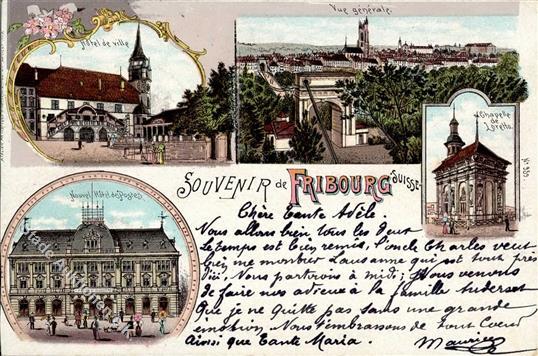 Hôtel de ville
Vue générale.
Chapelle
de
Loretto.
Nouvel Hôtel des Postes
SOUVENIR de FRIBOURG
SUISSE
Chère Tante Adèle.
Nous allons bien tous les deux
le temps est bien remis, l'oncle Charles veut
me montrer Lausanne qui est tout près
d'ici, Nous partirons à midi; Nous venons
de faire nos adieux à la famille
Que je ne quitte pas sans une grande
émotion. Nous t'embrassons de tout Coeur
Ainsi que Tante Maria.
Maurice